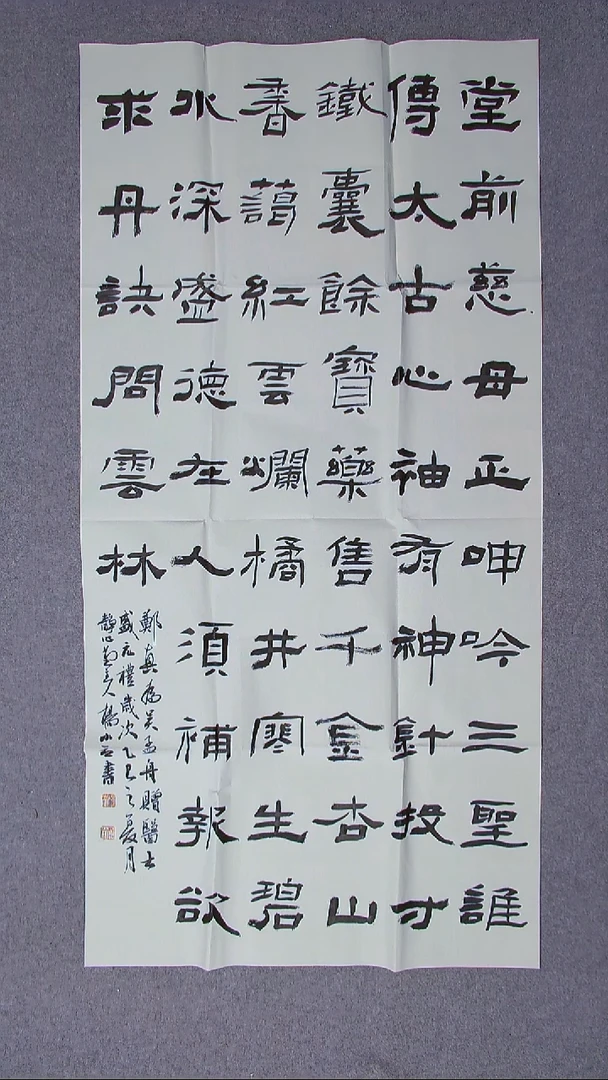 堂前慈母正呻吟三聖誰
傳太古心袖有神針投寸
鐵囊餘寶藥售千金杏山
香藹紅雲爛橘井寒生碧
水深盛德在人須補報欲
求丹訣問雲林
鄭真為吴孟舟贈醫士
盛元禮歲次乙巳之夏月
静心齋主人楊小石書